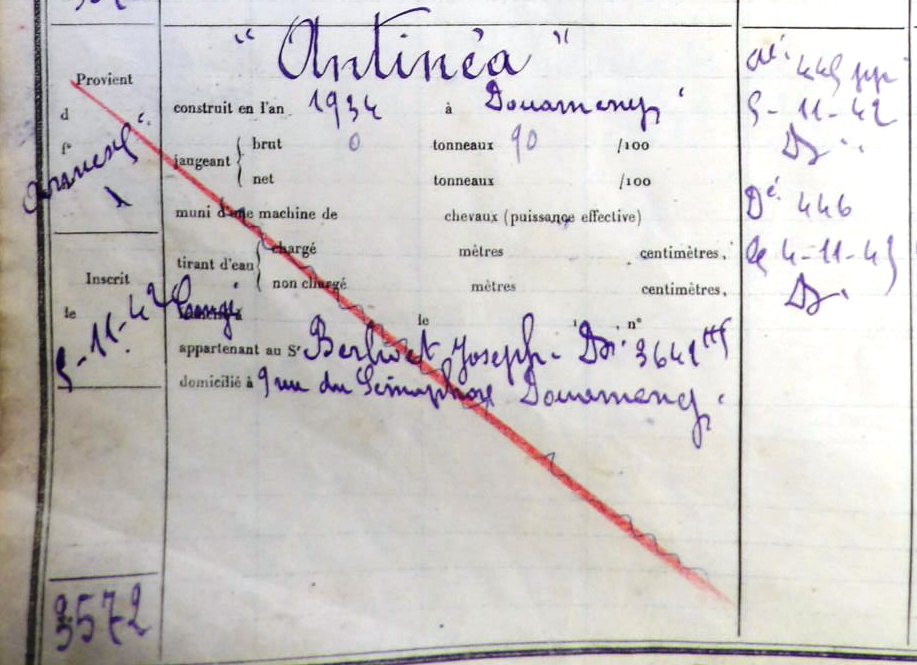 " Antinéa "
Provient
d
f°
1
Inscrit
le 5-11-42
3572
construit en l'an 1934 à Douarnenez
jaugeant { brut 0 tonneaux 90 /100
net tonneaux /100
muni d'une machine de chevaux (puissance effective)
tirant d'eau { chargé mètres centimètres,
non chargé mètres centimètres,
le , n°
appartenant au Sr Joseph. Dz. 3641
domicilié à 9 rue du Sémaphore Douarnenez.
445
5-11-42
Dz
Dé 446
4-11-43
Dz.